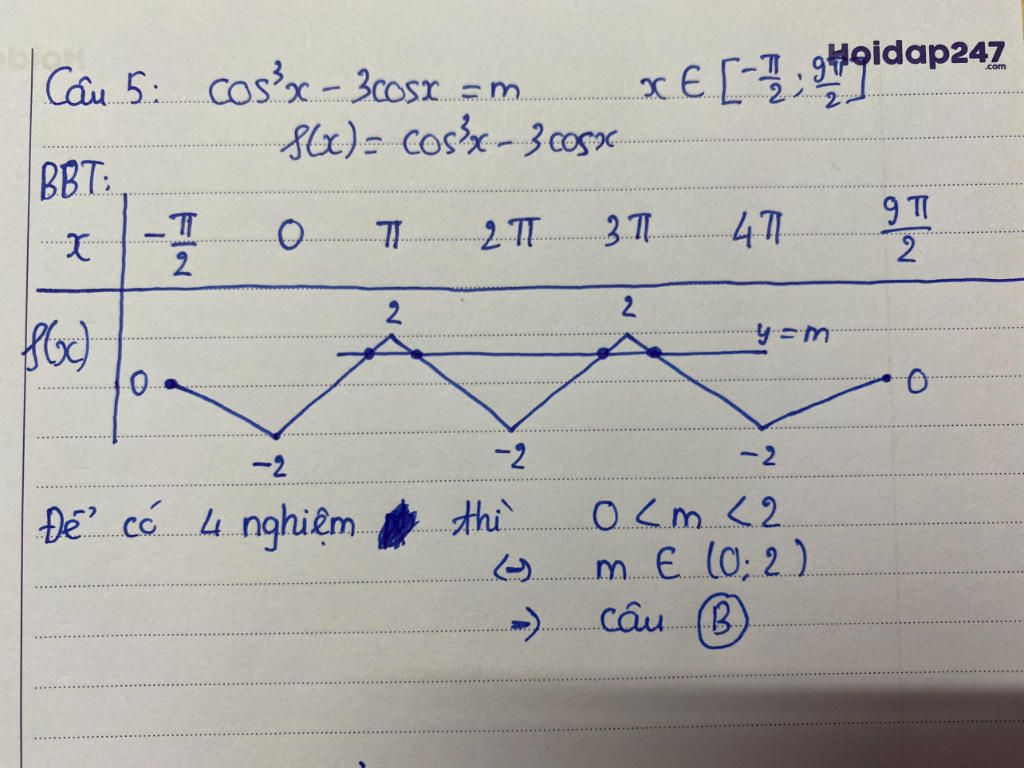 Hoidap247
.com
Câu 5: cos³x - 3cosx = m x ∈ [-π/2 ; 9π/2]
f(x) = cos³x - 3cosx
BBT:
x -π/2 0 π 2π 3π 4π 9π/2
f(x) 0 -2 2 -2 2 -2 0 y = m
Để có 4 nghiệm thì 0 < m < 2
<-> m ∈ (0; 2)
=> câu B